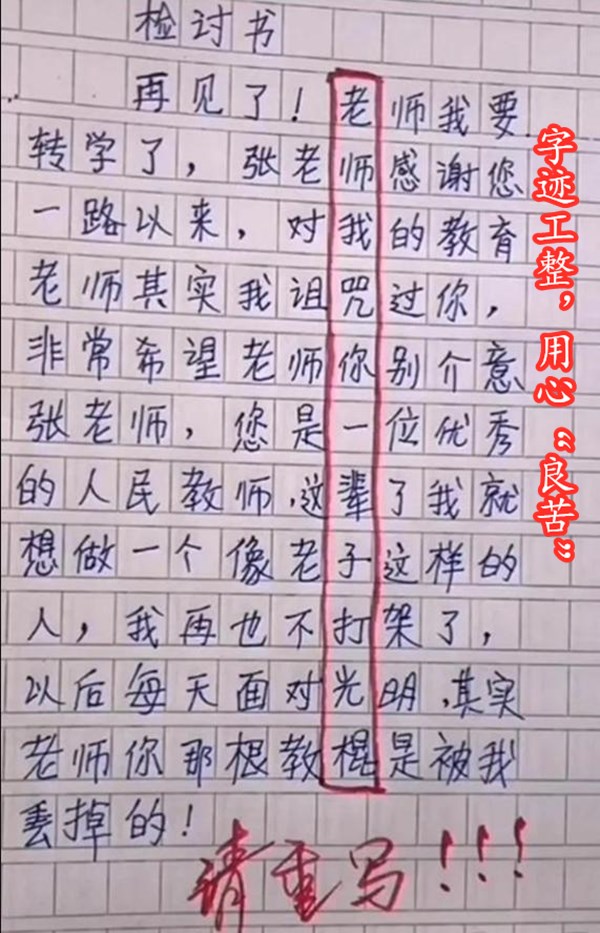 检讨书
再见了！老师我要
转学了，张老师感谢您
一路以来，对我的教育
老师其实我诅咒过你，
非常希望老师你别介意
张老师，您是一位优秀
的人民教师，这辈了我就
想做一个像老子这样的
人，我再也不打架了，
以后每天面对光明，其实
老师你那根教棍是被我
丢掉的！
请重写！！！
字迹工整，用心“良苦”